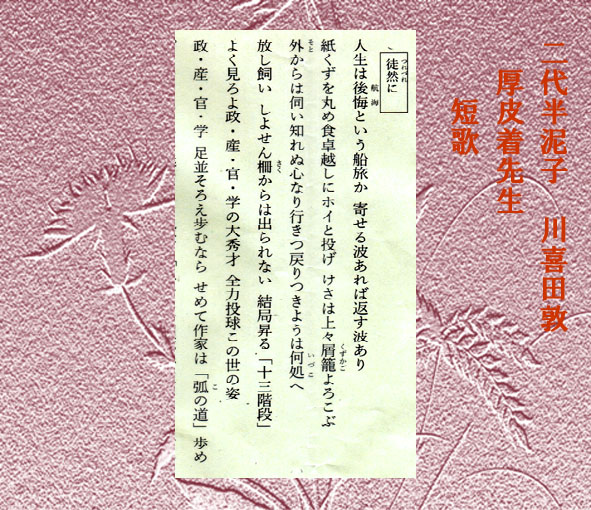 二代半泥子　川喜田敦
厚皮着先生
短歌
徒然に
つれづれ
人生は後悔という船旅か 寄せる波あれば返す波あり
航海
紙くずを丸め食卓越しにホイと投げ けさは上々屑籠よろこぶ
くずかご
外からは伺い知れぬ心なり行きつ戻りつきようは何処へ
そと
いづこ
放し飼い しよせん柵からは出られない 結局昇る「十三階段」
さく
よく見ろよ政・産・官・学の大秀才 全力投球この世の姿
政・産・官・学 足並そろえ歩むなら せめて作家は「弧の道」歩め
こ